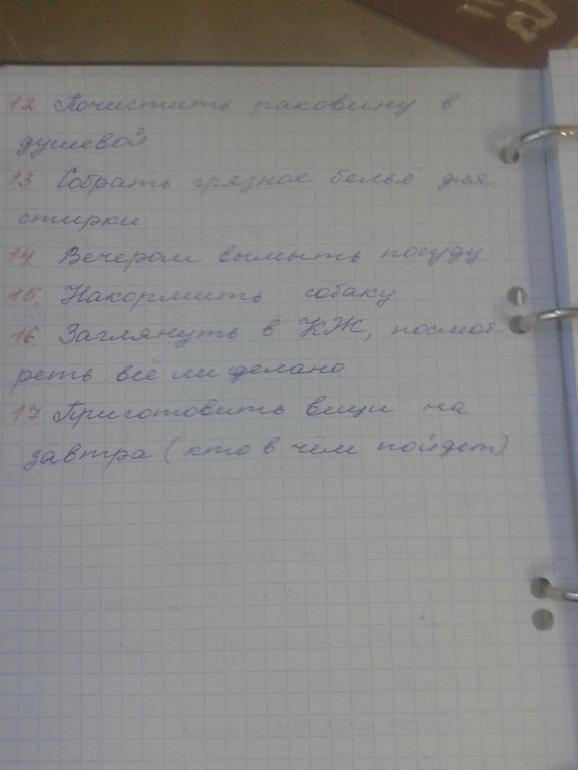 12 Почистить раковину в
душевой.
13. Собрать грязное бельё для
стирки.
14. Вечером вымыть посуду.
15. Накормить собаку.
16. Заглянуть в КЖ, посмот-
реть всё ли сделано.
17 Приготовить вещи на
завтра (кто в чём пойдет)